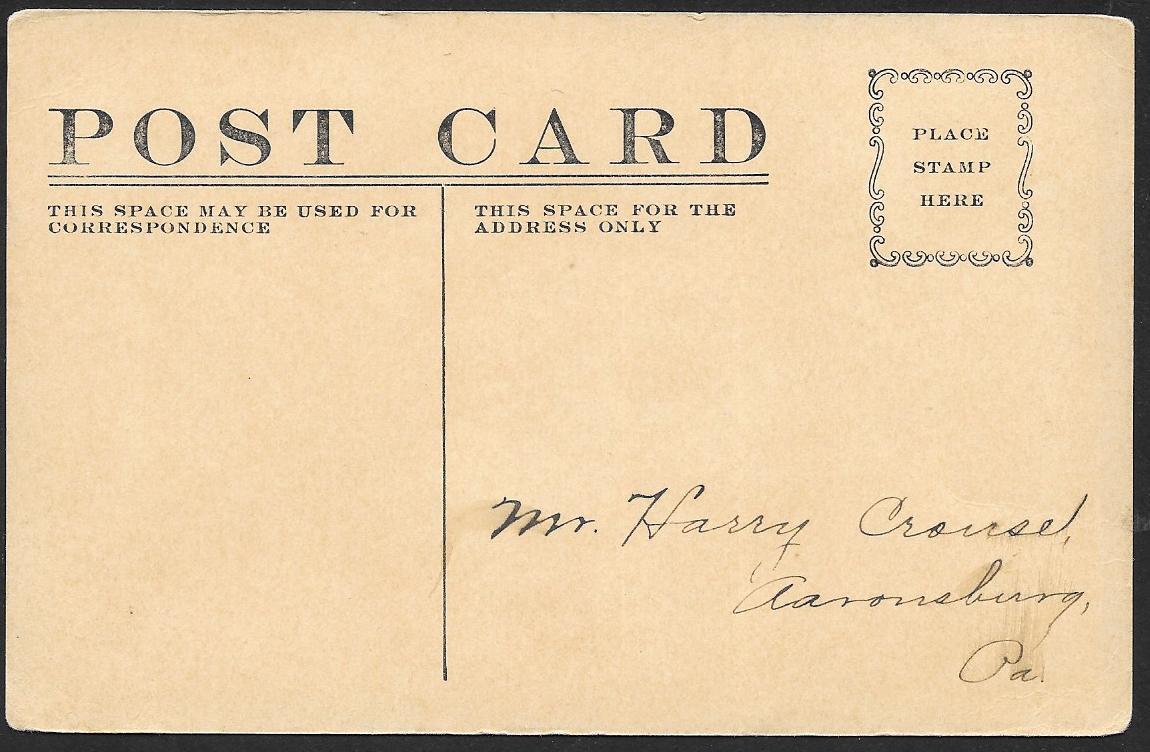 POST CARD
PLACE
STAMP
HERE
THIS SPACE MAY BE USED FOR
CORRESPONDENCE
THIS SPACE FOR THE
ADDRESS ONLY
Mr. Harry Crouse,
Aaronsburg,
Pa.